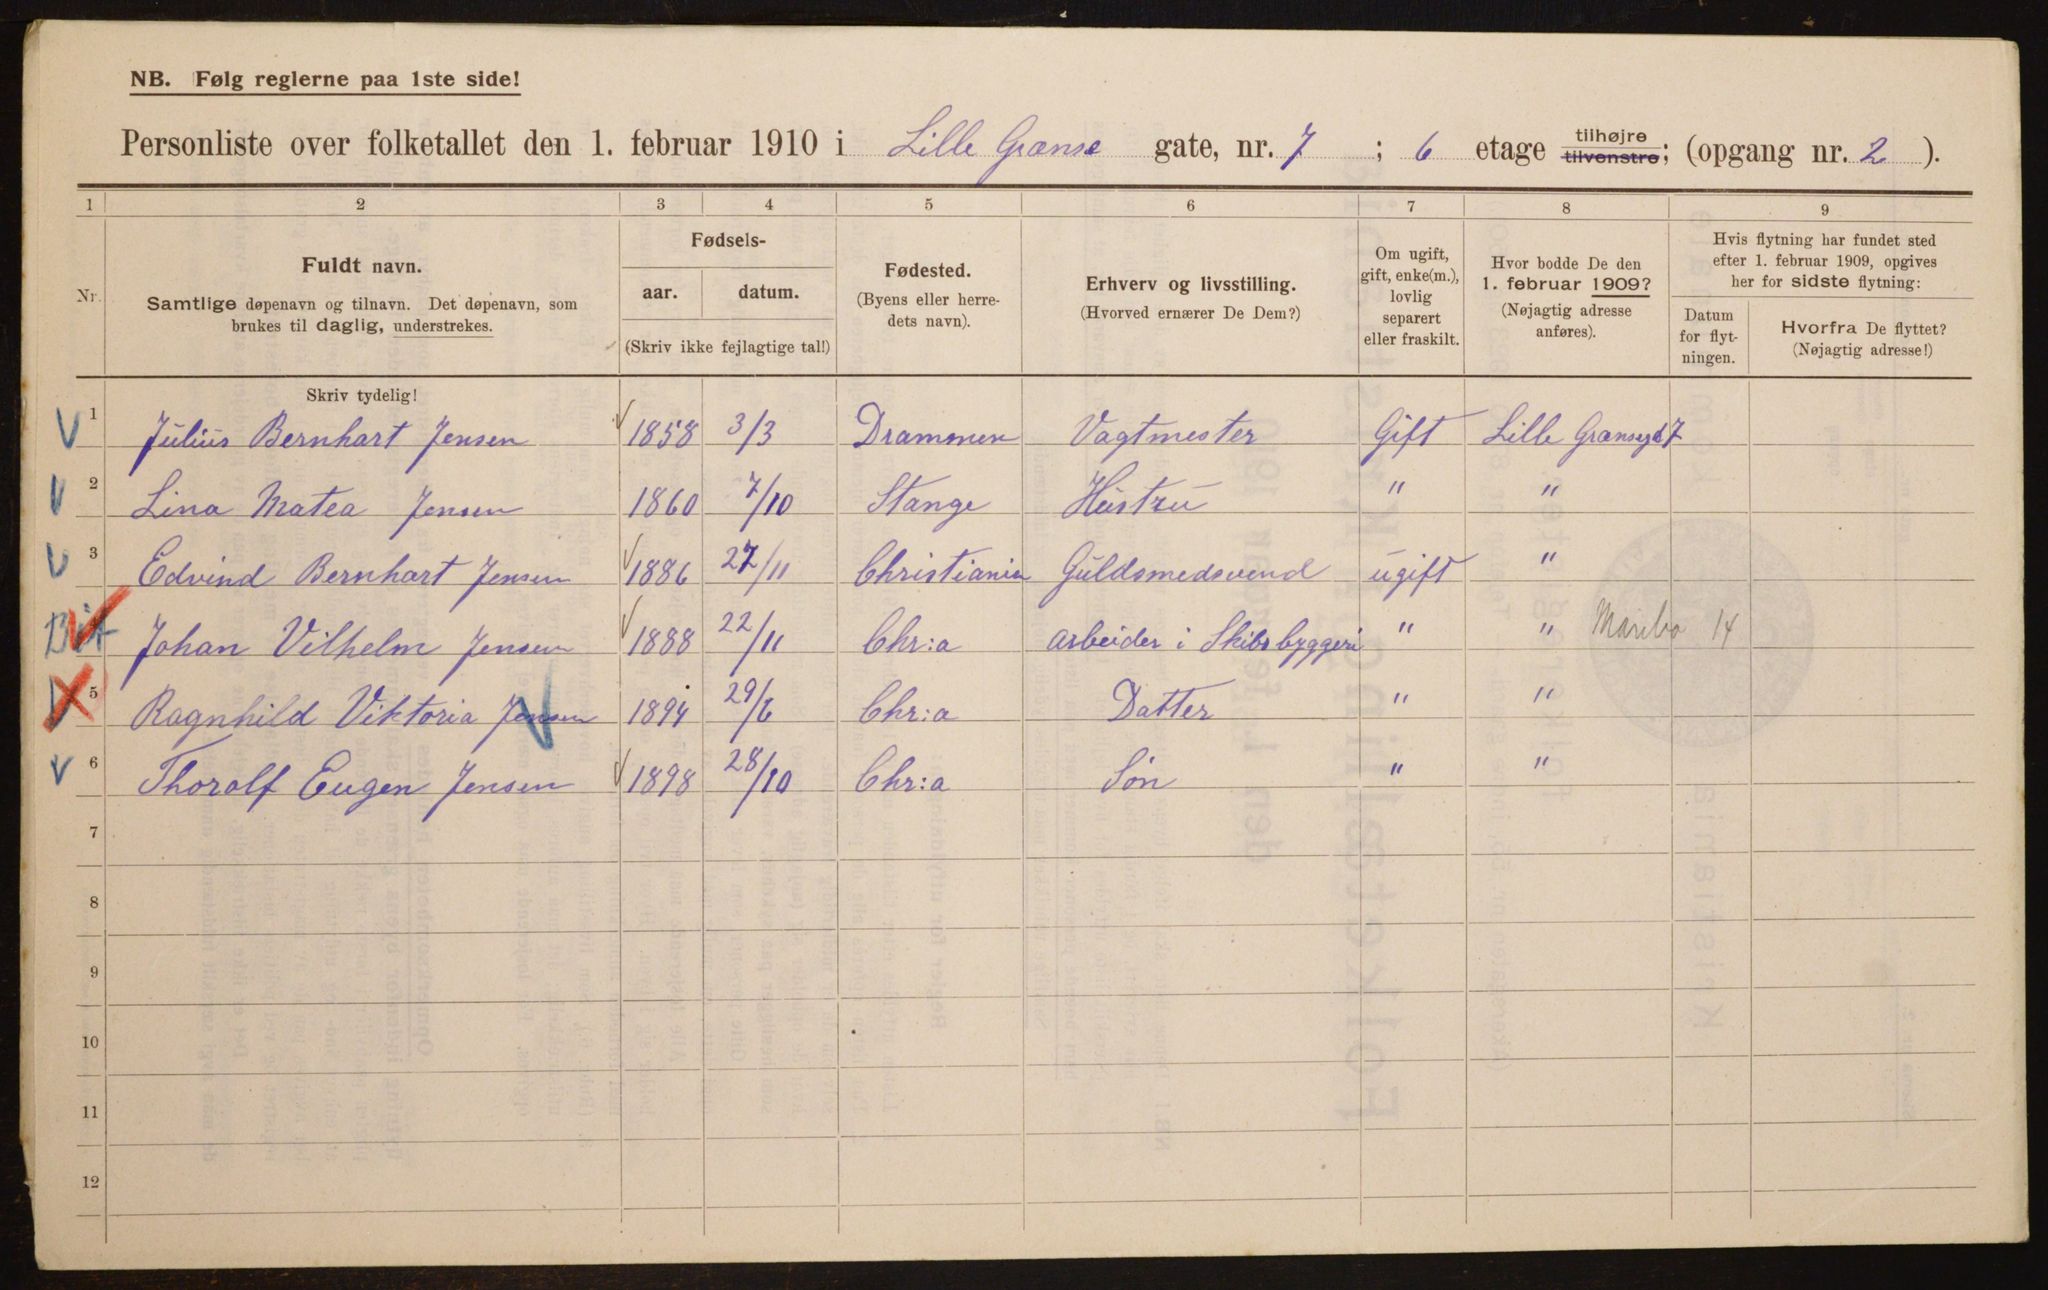 NB. Følg reglerne paa 1ste side!
Personliste over folketallet den 1. februar 1910 i Lille Grænse gate, nr. 7 ; 6 etage tilhøjre tilvenstre; (opgang nr. 2 ).
1 2 3 4 5 6 7 8 9
Nr. Fuldt navn. Samtlige døpenavn og tilnavn. Det døpenavn, som brukes til daglig, understrekes.
Fødsels- aar. datum. (Skriv ikke fejlagtige tal!)
Fødested. (Byens eller herredets navn).
Erhverv og livsstilling. (Hvorved ernærer De Dem?)
Om ugift, gift, enke(m.), lovlig separert eller fraskilt.
Hvor bodde De den 1. februar 1909? (Nøjagtig adresse anføres).
Hvis flytning har fundet sted efter 1. februar 1909, opgives her for sidste flytning:
Datum for flytningen.
Hvorfra De flyttet? (Nøjagtig adresse!)
Skriv tydelig!
1 Julius Bernhart Jensen 1858 3/3 Drammen Vagtmester Gift Lille Grænsegd 7
2 Lina Matea Jensen 1860 7/10 Stange Hustru " "
3 Edvind Bernhart Jensen 1886 27/11 Christiania Guldsmedsvend ugift "
Johan Vilhelm Jensen 1888 22/11 Chr:a arbeider i Skibsbyggeri " " Maribo 14
5 Ragnhild Viktoria Jensen 1894 29/6 Chr:a Datter " "
6 Thorolf Eugen Jensen 1898 28/10 Chr:a Søn " "
7
8
9
10
11
12